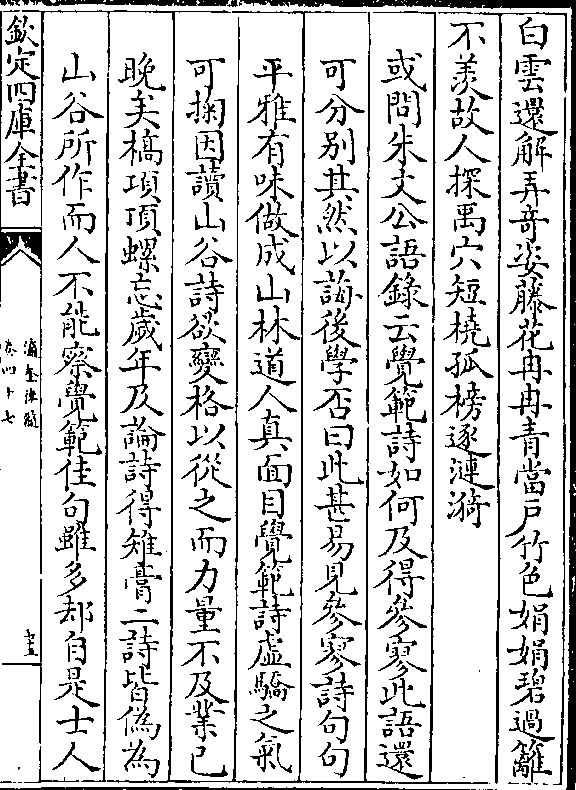 白雲還解弄奇姿藤花冉冉青當戶竹色娟娟碧過籬
不羨故人探禹穴短橈孤榜逐漣漪
或問朱文公語錄云覺範詩如何及得參寥此語還
可分別其然以誨後學否曰此甚易見參寥詩句句
平雅有味做成山林道人真面目覺範詩虛驕之氣
可掬因讀山谷詩欲變格以從之而力量不及業已
晚矣槁項頂螺忘歲年及論詩得雉膏二詩皆偽為
山谷所作而人不能察覺範佳句雖多却自是士人
欽定四庫全書
瀛奎律髓
卷四十七